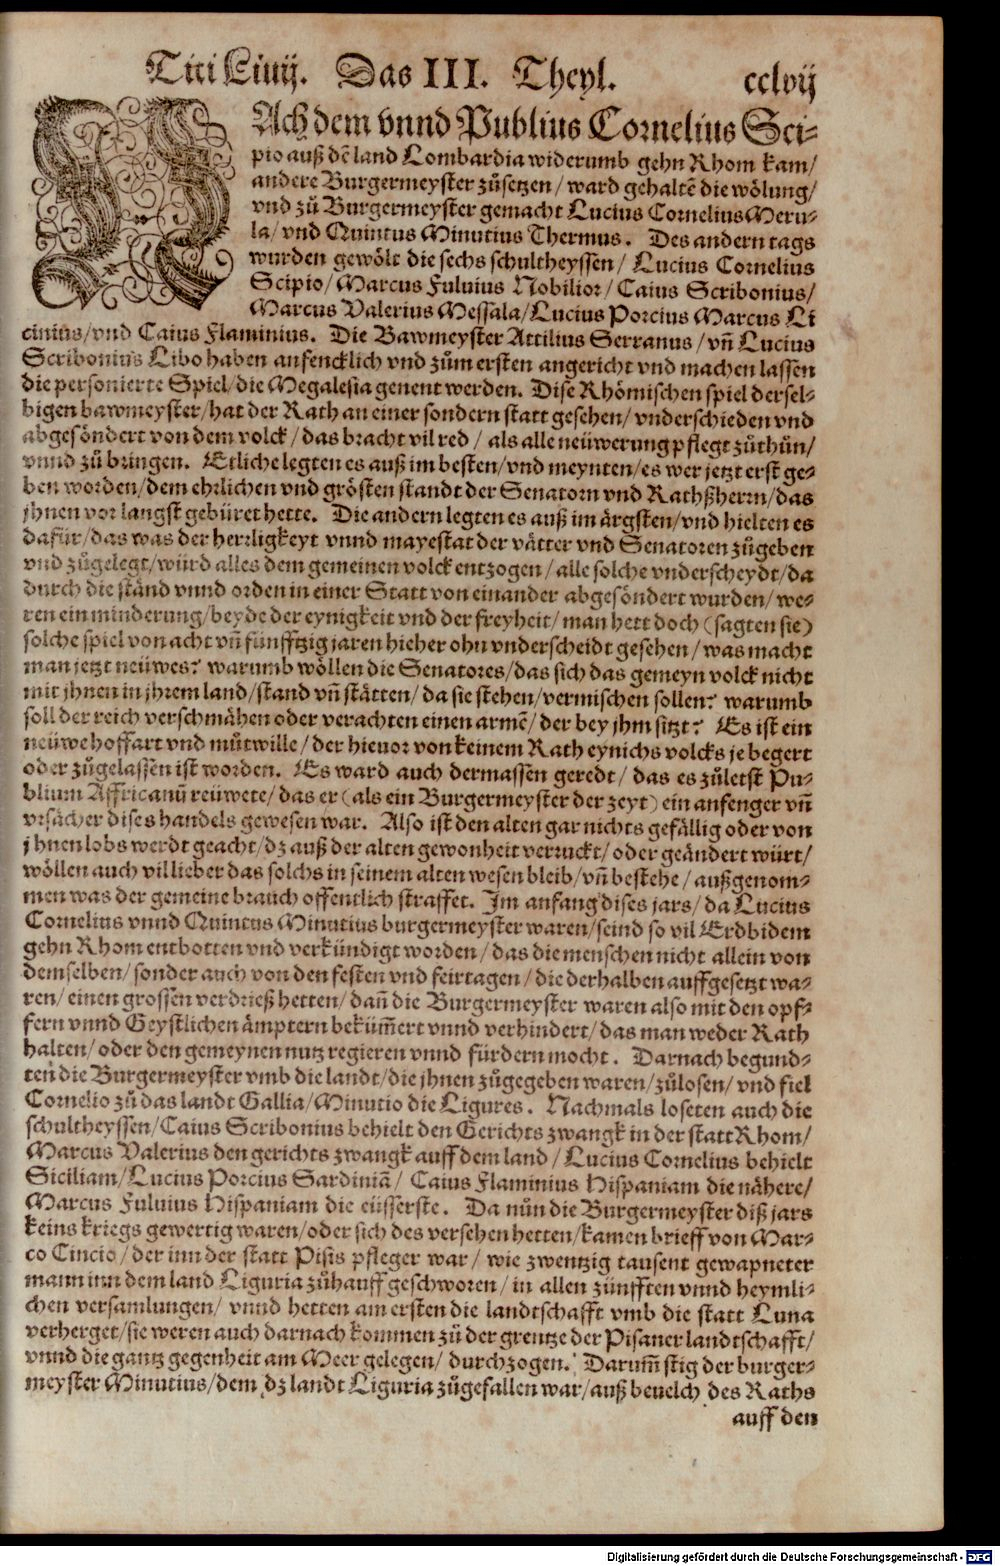 Titi Liuij. Das III. Theyl. cclvij
NAch dem vnnd Publius Cornelius Sci-
pio auß dē land Lombardia widerumb gehn Rhom kam/
andere Burgermeyster zůsetzen/ ward gehaltē die wölung/
vnd zů Burgermeyster gemacht Lucius Cornelius Meru-
la/ vnd Quintus Minutius Thermus. Des andern tags
wurden gewölt die sechs schultheyssen/ Lucius Cornelius
Scipio/ Marcus Fuluius Nobilior/ Caius Scribonius/
Marcus Valerius Messala/ Lucius Porcius Marcus Li
cinius/ vnd Caius Flaminius. Die Bawmeyster Attilius Serranus/ vñ Lucius
Scribonius Libo haben anfencklich vnd zům ersten angericht vnd machen lassen
die personierte Spiel/ die Megalesia genent werden. Dise Rhömischen spiel dersel-
bigen bawmeyster/ hat der Rath an einer sondern statt gesehen/ vnderschieden vnd
abgesöndert von dem volck/ das bracht vil red/ als alle neüwerung pflegt zůthůn/
vnnd zů bringen. Etliche legten es auß im besten/ vnd meynten/ es wer jetzt erst ge-
ben worden/ dem ehrlichen vnd grösten standt der Senatorn vnd Rathßherrn/ das
jhnen vor langst gebüret hette. Die andern legten es auß im ärgsten/ vnd hielten es
dafür/ das was der herrligkeyt vnnd mayestat der vätter vnd Senatoren zůgeben
vnd zůgelegt/ würd alles dem gemeinen volck entzogen/ alle solche vnderscheydt/ da
durch die ständ vnnd orden in einer Statt von einander abgesöndert wurden/ we-
ren ein minderung/ beyde der eynigkeit vnd der freyheit/ man hett doch (sagten sie)
solche spiel von acht vñ fünfftzig jaren hieher ohn vnderscheidt gesehen/ was macht
man jetzt neüwes? warumb wöllen die Senatores/ das sich das gemeyn volck nicht
mit jhnen in jhrem land/ stand vñ stätten/ da sie stehen/ vermischen sollen? warumb
soll der reich verschmähen oder verachten einen armē/ der bey jhm sitzt? Es ist ein
neüwe hoffart vnd můtwille/ der hieuor von keinem Rath eynichs volcks je begert
oder zůgelassen ist worden. Es ward auch dermassen geredt/ das es zůletst Pu-
blium Affricanū reüwete/ das er (als ein Burgermeyster der zeyt) ein anfenger vñ
vrsächer dises handels gewesen war. Also ist den alten gar nichts gefällig oder von
jhnen lobs werdt geacht/ dz auß der alten gewonheit verruckt/ oder geändert würt/
wöllen auch vil lieber das solchs in seinem alten wesen bleib/ vñ bestehe/ außgenom-
men was der gemeine brauch offentlich straffet. Im anfang dises jars/ da Lucius
Cornelius vnnd Quintus Minutius burgermeyster waren/ seind so vil Erdbidem
gehn Rhom entbotten vnd verkündigt worden/ das die menschen nicht allein von
demselben/ sonder auch von den festen vnd feirtagen/ die derhalben auffgesetzt wa-
ren/ einen grossen verdrieß hetten/ dañ die Burgermeyster waren also mit den opf-
fern vnnd Geystlichen ämptern bekümm̄ert vnnd verhindert/ das man weder Rath
halten/ oder den gemeynen nutz regieren vnnd fürdern mocht. Darnach begund-
ten die Burgermeyster vmb die landt/ die jhnen zůgegeben waren/ zůlosen/ vnd fiel
Cornelio zů das landt Gallia/ Minutio die Ligures. Nachmals loseten auch die
schultheyssen/ Caius Scribonius behielt den Gerichts zwangk in der statt Rhom/
Marcus Valerius den gerichts zwangk auff dem land/ Lucius Cornelius behielt
Siciliam/ Lucius Porcius Sardiniā/ Caius Flaminius Hispaniam die nähere/
Marcus Fuluius Hispaniam die eüsserste. Da nůn die Burgermeyster diß jars
keins kriegs gewertig waren/ oder sich des versehen hetten/ kamen brieff von Mar-
co Cincio/ der inn der statt Pisis pfleger war/ wie zwentzig tausent gewapneter
mann inn dem land Liguria zůhauff geschworen/ in allen zünfften vnnd heymli-
chen versamlungen/ vnnd hetten am ersten die landtschafft vmb die statt Luna
verherget/ sie weren auch darnach kommen zů der grentze der Pisaner landtschafft/
vnnd die gantz gegenheit am Meer gelegen/ durchzogen. Darum̄ stig der burger-
meyster Minutius/ dem dz landt Liguria zůgefallen war/ auß beuelch des Raths
auff den
Digitalisierung gefördert durch die Deutsche Forschungsgemeinschaft - DFG